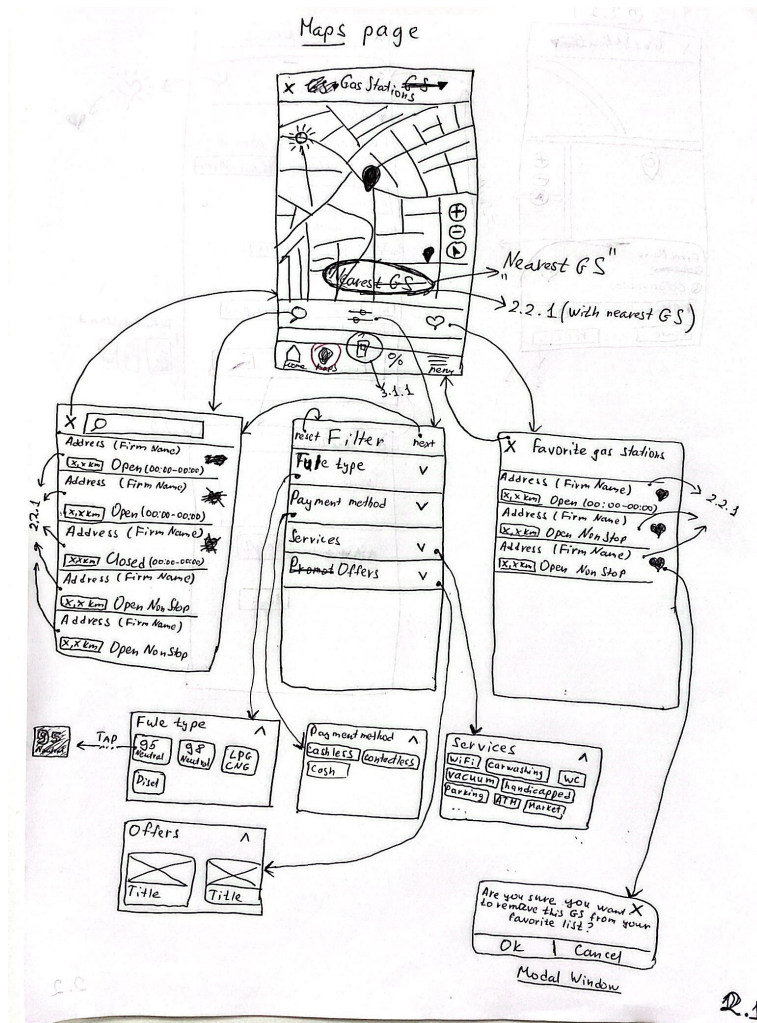 Maps page
X Gas Stations GS
Nearest GS
"Nearest GS"
2.2.1 (with nearest GS)
Home
Maps
%
menu
3.1.1
X
Address (Firm Name)
x,x km Open (00:00-00:00)
Address (Firm Name)
x,x km Open (00:00-00:00)
Address (Firm Name)
x,x km Closed (00:00-00:00)
Address (Firm Name)
x,x km Open Non Stop
Address (Firm Name)
x,x km Open Non Stop
2.2.1
reset Filter next
Fule type
Payment method
Services
Promot Offers
X Favorite gas stations
Address (Firm Name)
x,x km Open (00:00-00:00)
Address (Firm Name)
x,x km Open Non Stop
Address (Firm Name)
x,x km Open Non Stop
2.2.1
95
Neutral
TAP
Fule type
95
Neutral
98
Neutral
LPG
CNG
Disel
Payment method
Cashless
contactless
Cash
Services
WiFi
carwashing
WC
vacuum
handicapped
Parking
ATM
Market
...
Offers
Title
Title
Are you sure you want X
to remove this GS from your
favorite list?
Ok | Cancel
Modal Window
2.1